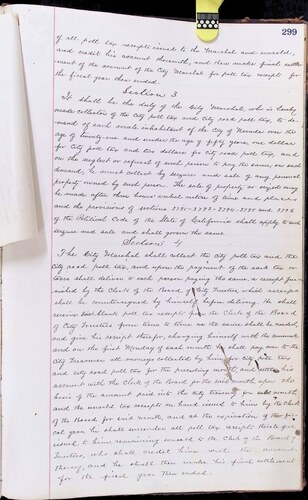 299
of all poll tax receipts issued to the Marshal and unsold,
and credit his account therewith, and then make final settle-
ment of the account of the City Marshal for poll tax receipts for
the fiscal year then ended.
Section 3
It shall be the duty of the City Marshal, who is hereby
made collector of the city poll tax and city road poll tax, to de-
mand of each male inhabitant of the City of over the
age of twenty-one and under the age of fifty years, one dollar
for City poll tax and two dollars for City road poll tax, and
on the neglect or refusal of such person to pay the same, on such
demand, he must collect by seizure and sale of any personal
property owned by such person. The sale of property so seized may
be made after three hours verbal notice of time and place
and the provisions of sections 3791-3793-3794-3795 and 3796
of the Political Code of the State of California shall apply to such
seizure and sale and shall govern the same.
Section 4
The City Marshal shall collect the city poll tax and the
city road poll tax, and upon the payment of the said tax or
taxes shall deliver to each person paying the same, a receipt fur-
nished by the Clerk of the Board of City Trustees which receipt
shall be countersigned by himself before delivery. He shall
receive said blank poll tax receipts from the Clerk of the Board
of City Trustees from time to time as the same shall be needed,
and give his receipt therefor, charging himself with the amount,
and on the first Monday of each month he shall pay over to the
City Treasurer all moneys collected by him for city poll tax
and city road poll tax for the preceding month and settle his
account with the Clerk of the Board for the said month upon the
basis of the amount paid into the city treasury for said month
and the unsold tax receipts on hand issued to him by the Clerk
of the Board for said month, and at the expiration of the fis-
cal year he shall surrender all poll tax receipts thereto-
issued to him remaining unused to the Clerk of the Board of
Trustees, who shall credit him with the amount
thereof, and he shall then make his final settlement
for the fiscal year then ended.